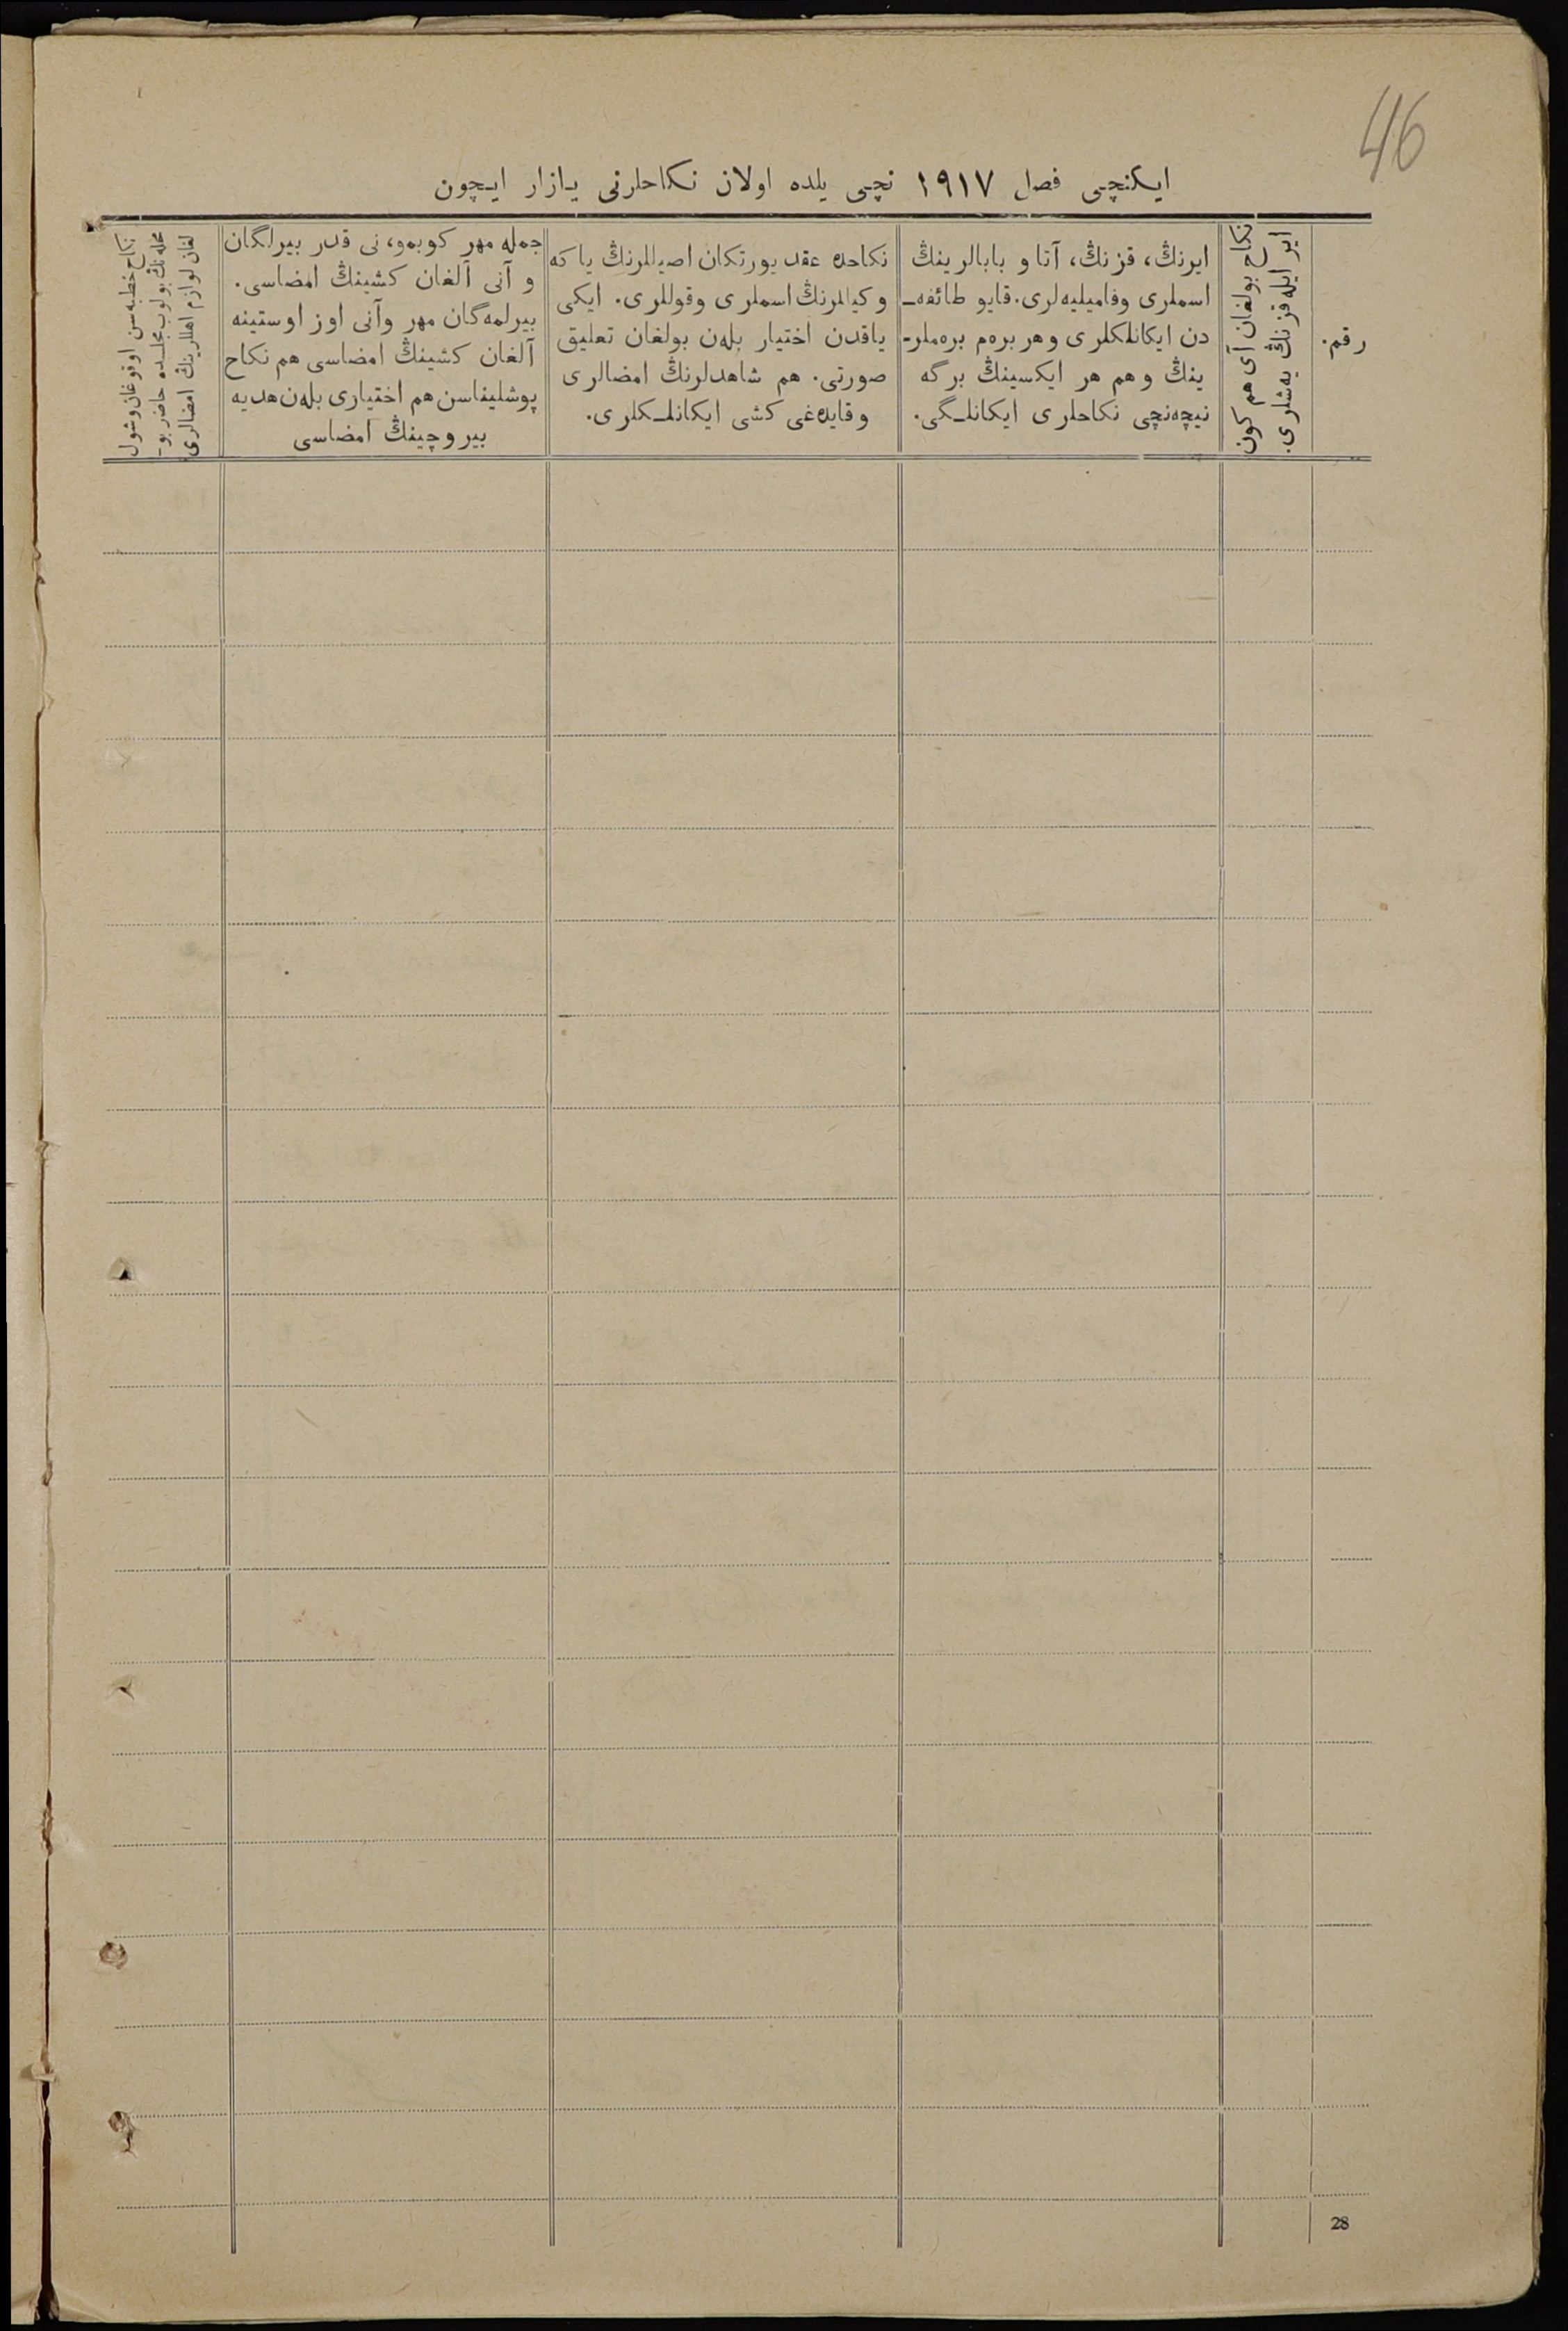 46
ایکنچی فصل ۱۹۱۷ نچی یلده اولان نکاحلرنی یازار ایچون
رقم.
نکاح بولغان آی هم کون
ایر ایله قزنڭ یه‌شلری.
ایرنڭ، قزنڭ، آتا و بابالرینڭ
اسملری وفامیلیه‌لری. قایو طائفه‌ـ
دن ایکانلکلری وهر بره‌م بره‌ملرـ
ینڭ و هم هر ایکسینڭ برگه
نیچه‌نچی نکاحلری ایکانلـگی.
نکاحده عقد یورتکان اصیللرنڭ یا که
وکیللرنڭ اسملری وقوللری. ایکی
یاقدن اختیار بله‌ن بولغان تعلیق
صورتی. هم شاهدلرنڭ امضالری
وقایده‌غی کشی ایکانلـکلری.
جمله مهر کوبمو، نی قدر بیرلگان
و آنی آلغان کشینڭ امضاسی.
بیرلمه‌گان مهر وآنی اوز اوستینه
آلغان کشینڭ امضاسی هم نکاح
پوشلیناسن هم اختیاری بله‌ن هدیه
بیروچینڭ امضاسی
نکاح خطبه‌سن اوقوغان وشول
محله‌نڭ بولوب مجلسده حاضر بوـ
لغان لوازم اهللرینڭ امضالری
28